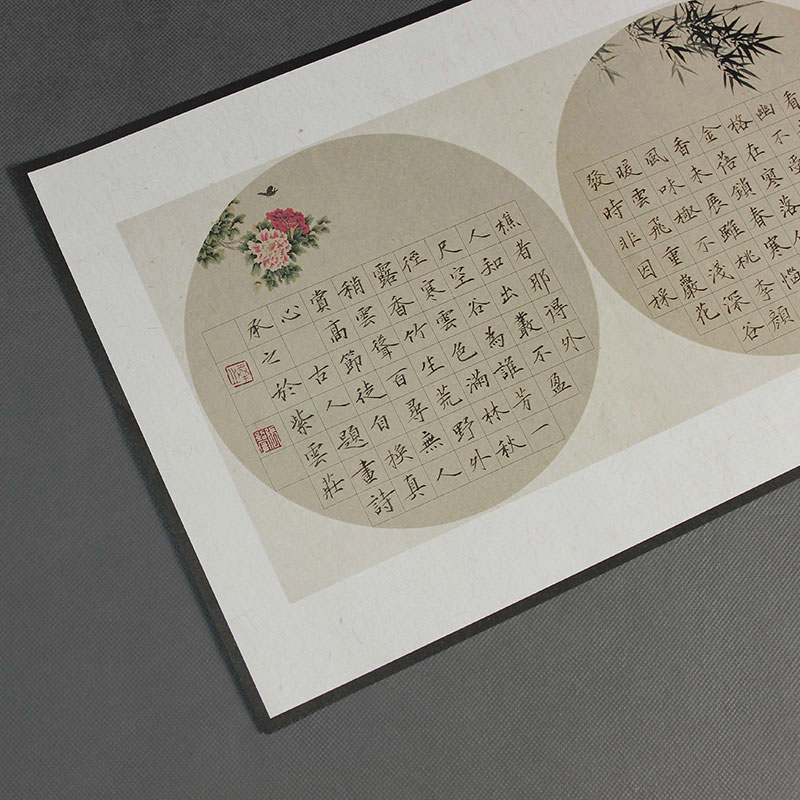 看
幽不
格在寒落
金蓓鎖春寒惱
香未展雖桃李顏
風味極不淺深谷
暖雲飛重巖花
發時非因採
樵者那得外
人知出叢不盈
尺空谷為誰芳一
徑寒雲色滿林秋
露香竹生荒野外
稍雲聳百尋無人
賞高節徒自換真
心 古人題畫詩
承之於紫雲莊